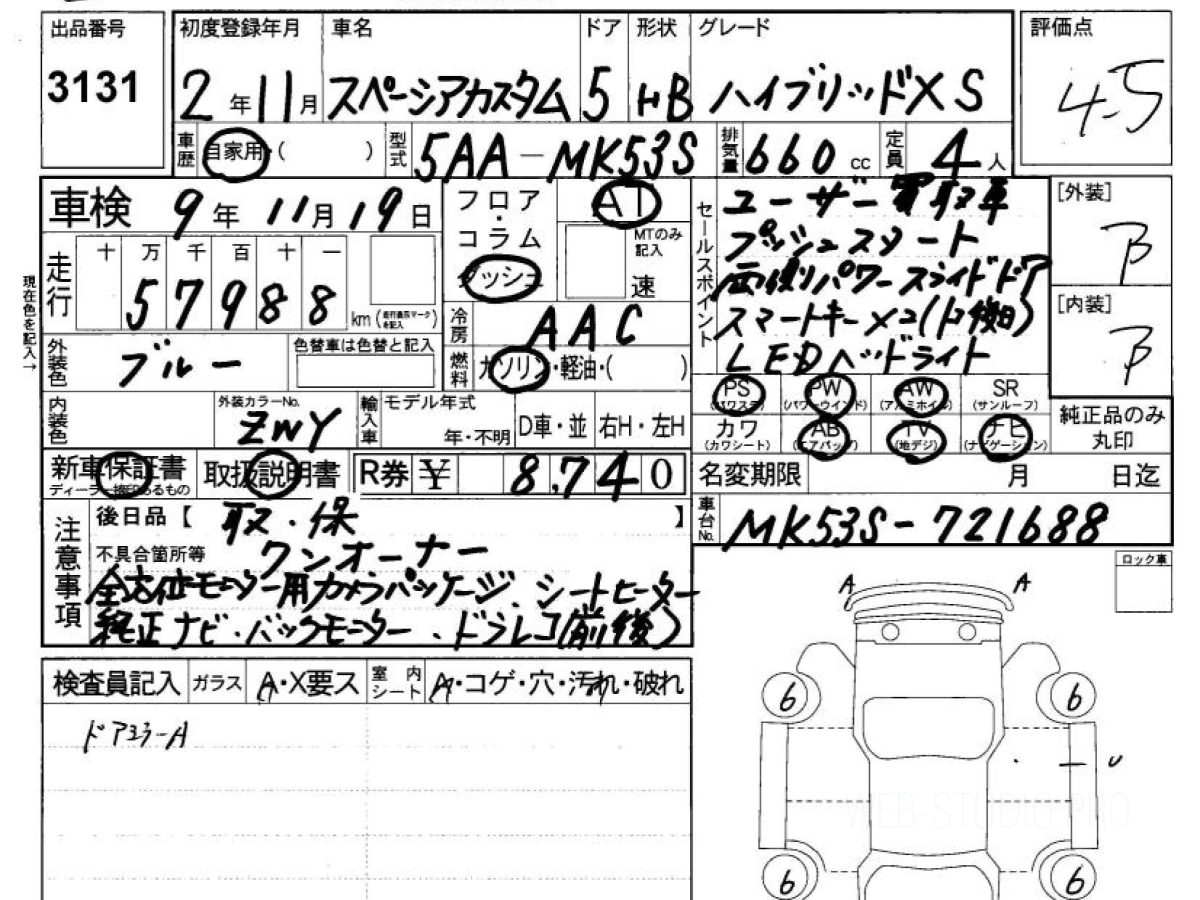 出品番号
3131
初度登録年月
2年11月
車名
スペーシアカスタム
ドア
5
形状
HB
グレード
ハイブリッドXS
評価点
4.5
車歴
自家用・( )
型式
5AA-MK53S
排気量
660cc
定員
4人
車検
9年11月19日
フロア・コラム
ダッシュ
AT
MTのみ記入
速
セールスポイント
ユーザー買取車
プッシュスタート
両側パワースライドドア
スマートキー×2
LEDヘッドライト
[外装]
B
[内装]
B
現在色を記入→
走行
十 万 千 百 十 一
5 7 9 8 8
km
(走行表示マークを記入)
冷房
AAC
燃料
ガソリン・軽油・( )
外装色
ブルー
色替車は色替と記入
内装色
外装カラーNo.
ZWY
輸入車
モデル年式
年・不明
D車・並
右H・左H
PS
(パワステ)
PW
(パワーウインド)
AW
(アルミホイル)
SR
(サンルーフ)
カワ
(カワシート)
AB
(エアバッグ)
TV
(地デジ)
ナビ
(ナビゲーション)
純正品のみ
丸印
新車保証書
ディーラー捺印あるもの
取扱説明書
R券
¥
8,740
名変期限
月
日迄
車台No.
MK53S-721688
注意事項
後日品【 取・保 】
不具合箇所等
ワンオーナー
全方位モニター用カメラパッケージ、シートヒーター
純正ナビ・バックモニター・ドラレコ(前後)
ロック車
検査員記入
ガラス
A・X要ス
室内シート
A・コゲ・穴・汚れ・破れ
ドアミラーA
A
A
6
6
U
6
6
WEB-STUDIO.PRO